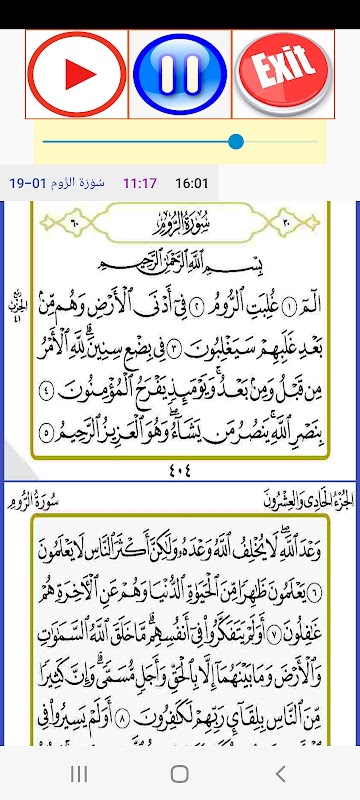 Exit
19-01 سُوْرَة الرُّوم 11:17 16:01
٦٠ سُورَةُ الرُّومِ ٣٠
بِسْمِ اللَّهِ الرَّحْمَٰنِ الرَّحِيمِ
الٓمٓ ١ غُلِبَتِ الرُّومُ ٢ فِىٓ أَدْنَى الْأَرْضِ وَهُم مِّنۢ
بَعْدِ غَلَبِهِمْ سَيَغْلِبُونَ ٣ فِى بِضْعِ سِنِينَ ۗ لِلَّهِ الْأَمْرُ
مِن قَبْلُ وَمِنۢ بَعْدُ ۚ وَيَوْمَئِذٍ يَفْرَحُ الْمُؤْمِنُونَ ٤
بِنَصْرِ اللَّهِ ۚ يَنصُرُ مَن يَشَآءُ ۖ وَهُوَ الْعَزِيزُ الرَّحِيمُ ٥
٤٠٤
الجُزْءُ الحَادِى وَالعِشْرُونَ سُورَةُ الرُّومِ
وَعْدَ اللَّهِ ۖ لَا يُخْلِفُ اللَّهُ وَعْدَهُۥ وَلَٰكِنَّ أَكْثَرَ النَّاسِ لَا يَعْلَمُونَ
٦ يَعْلَمُونَ ظَٰهِرًا مِّنَ الْحَيَوٰةِ الدُّنْيَا وَهُمْ عَنِ الْءَاخِرَةِ هُمْ
غَٰفِلُونَ ٧ أَوَلَمْ يَتَفَكَّرُوا۟ فِىٓ أَنفُسِهِم ۗ مَّا خَلَقَ اللَّهُ السَّمَٰوَٰتِ
وَالْأَرْضَ وَمَا بَيْنَهُمَآ إِلَّا بِالْحَقِّ وَأَجَلٍ مُّسَمًّى ۗ وَإِنَّ كَثِيرًا
مِّنَ النَّاسِ بِلِقَآئِ رَبِّهِمْ لَكَٰفِرُونَ ٨ أَوَلَمْ يَسِيرُوا۟ فِى